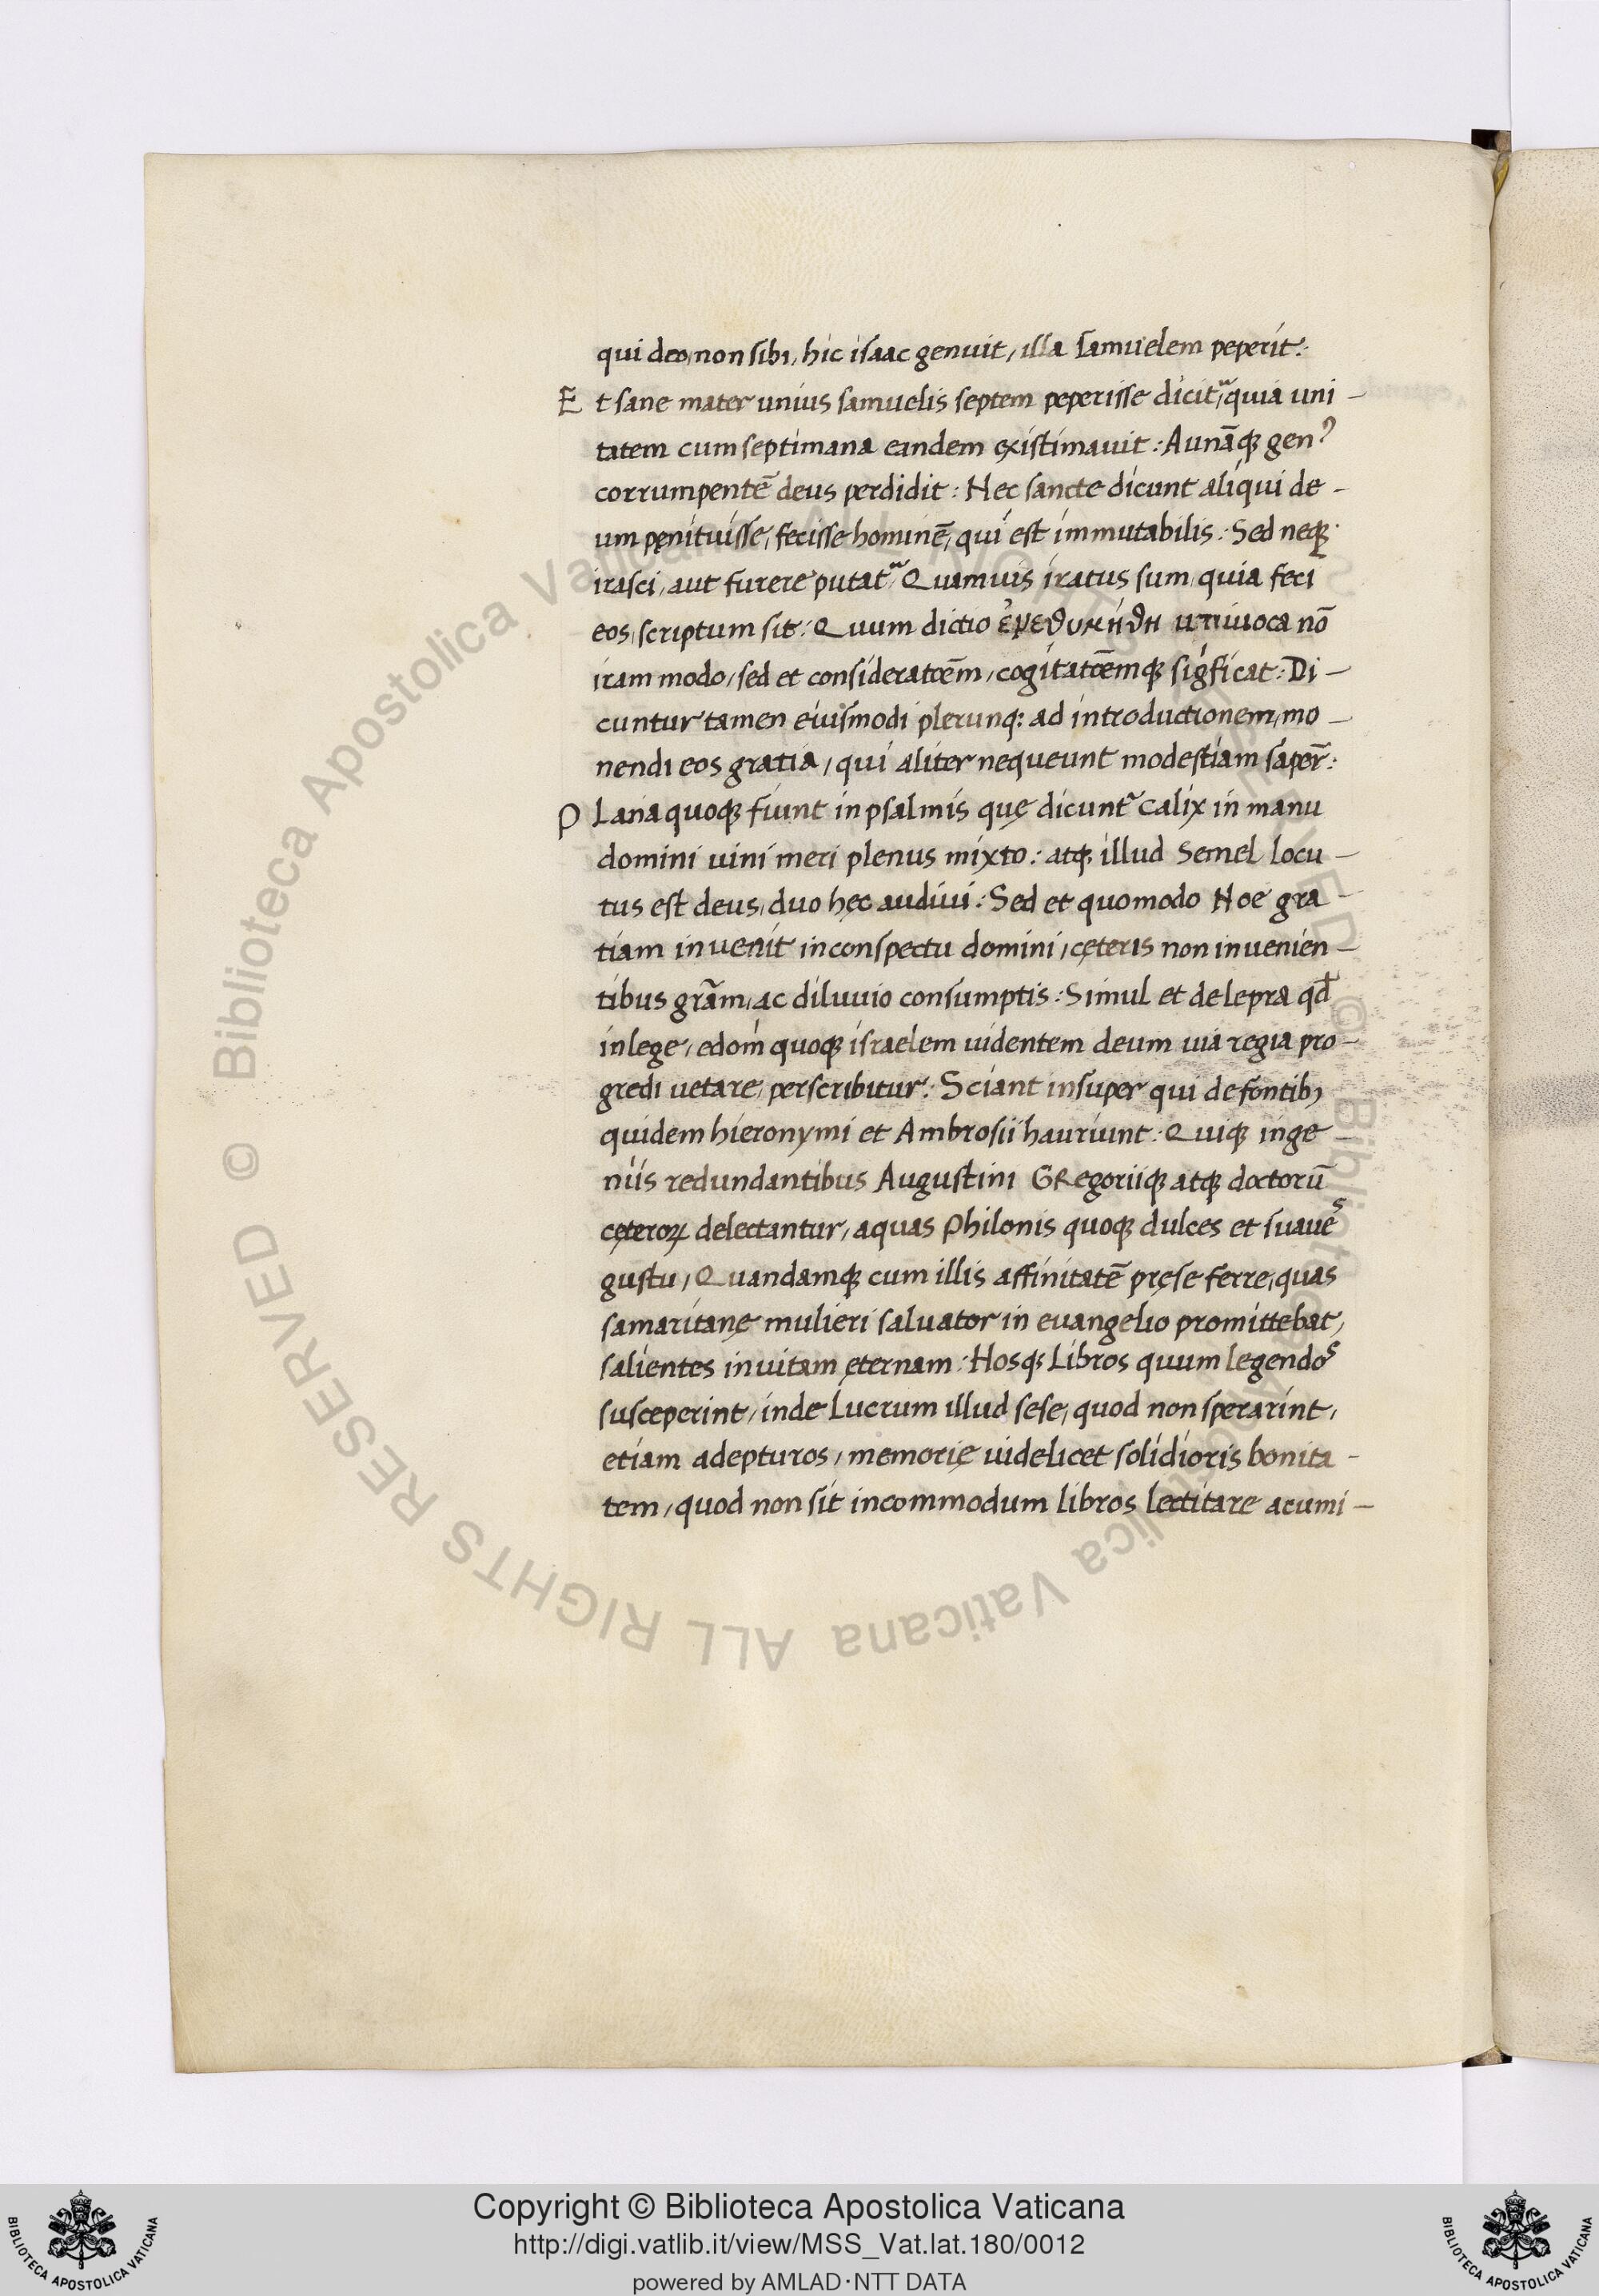 qui deo, non sibi, hic isaac genuit, illa Samuelem peperit:
E t sane mater unius samuelis septem peperisse dicit᷑, quia uni –
tatem cum septimana eandem existimauit: Aunāq; gen⁹
corrumpentē deus perdidit: Hec sancte dicunt aliqui de –
um pęnituisse, fecisse hominē, qui est immutabilis: Sed neq;
irasci, aut furere putat᷑ Quamuis iratus sum, quia feci
eos, scriptum sit: Quum dictio ἐμεθυμήθη uniuoca nō
iram modo, sed et consideratōem, cogitatōemq; sigficat: Di –
cuntur tamen eiusmodi plerunq: ad introductionem, mo –
nendi eos gratia, qui aliter nequeunt modestiam saper̄:
P Lana quoq; fiunt in psalmis quę dicunt᷑ calix in manu
domini uini meri plenus mixto: atq; illud Semel locu –
tus est deus, duo hęc audiui: Sed et quomodo Noe gra –
tiam inuenit in conspectu domini, cęteris non inuenien –
tibus grām, ac diluuio consumptis: Simul et de lepra qđ
in lege, edom quoq; israelem uidentem deum uia regia pro –
gredi uetare, perscribitur: Sciant insuper qui de fontib;
quidem hieronymi et Ambrosii hauriunt: Quiq; inge –
niis redundantibus Augustini GRegoriiq; atq; doctorū
cęteroꝝ delectantur, aquas Philonis quoq; dulces et suaues
gustu, Quandamq; cum illis affinitatē pręse ferre, quas
samaritanę mulieri saluator in euangelio promittebat,
salientes in uitam ęternam: Hosq; Libros quum legendos
susceperint, inde Lucrum illud sese, quod non sperarint,
etiam adepturos, memorię uidelicet solidioris bonita –
tem, quod non sit incommodum libros lectitare acumi –
© Biblioteca Apostolica Vaticana ALL RIGHTS RESERVED
© Biblioteca Apostolica Vaticana ALL RIGHTS RESERVED
Copyright © Biblioteca Apostolica Vaticana
http://digi.vatlib.it/view/MSS_Vat.lat.180/0012
powered by AMLAD·NTT DATA
BIBLIOTECA APOSTOLICA VATICANA
BIBLIOTECA APOSTOLICA VATICANA